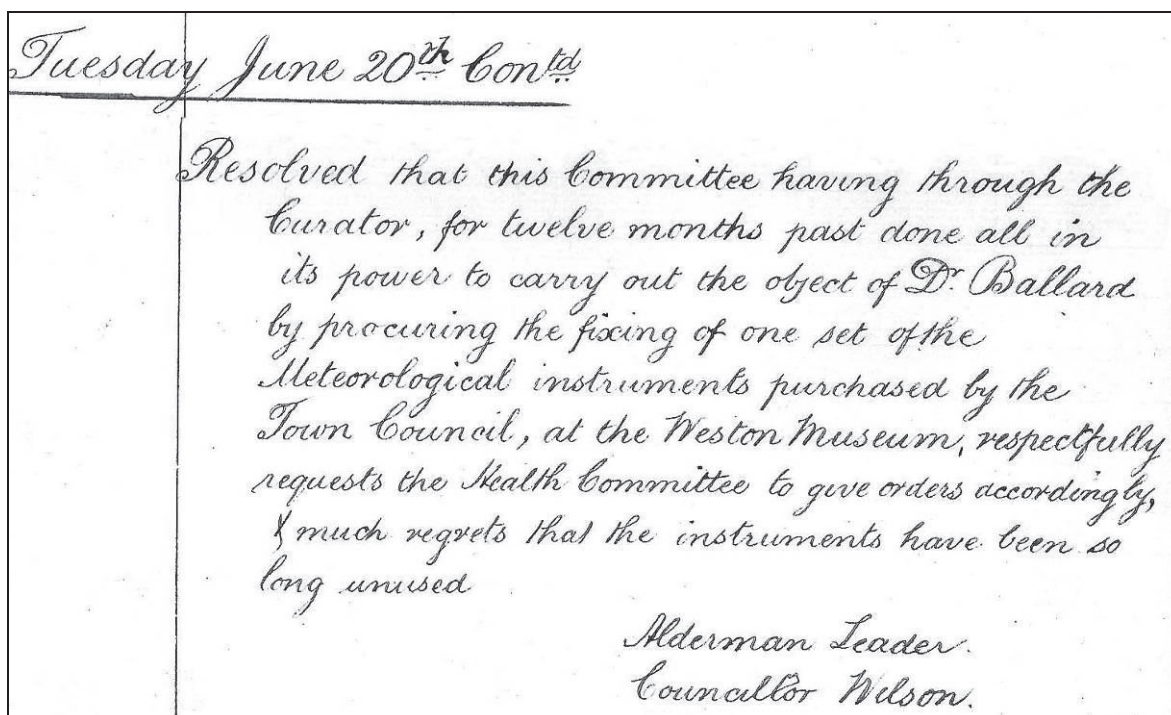 Tuesday June 20th Contd
Resolved that this Committee having through the
Curator, for twelve months past done all in
its power to carry out the object of Dr. Ballard
by procuring the fixing of one set of the
Meteorological instruments purchased by the
Town Council, at the Weston Museum, respectfully
requests the Health Committee to give orders accordingly,
& much regrets that the instruments have been so
long unused
Alderman Leader.
Councillor Wilson.